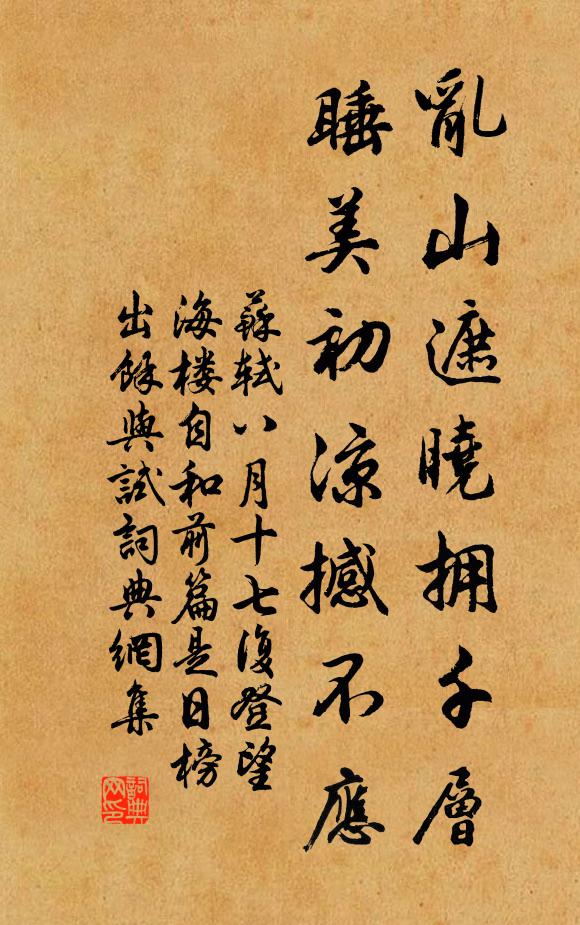 亂山遮曉擁千層
睡美初涼撼不應
蘇軾八月十七復登望
海楼自和前篇是日榜
出餘與試詞典網集
詞典
网印